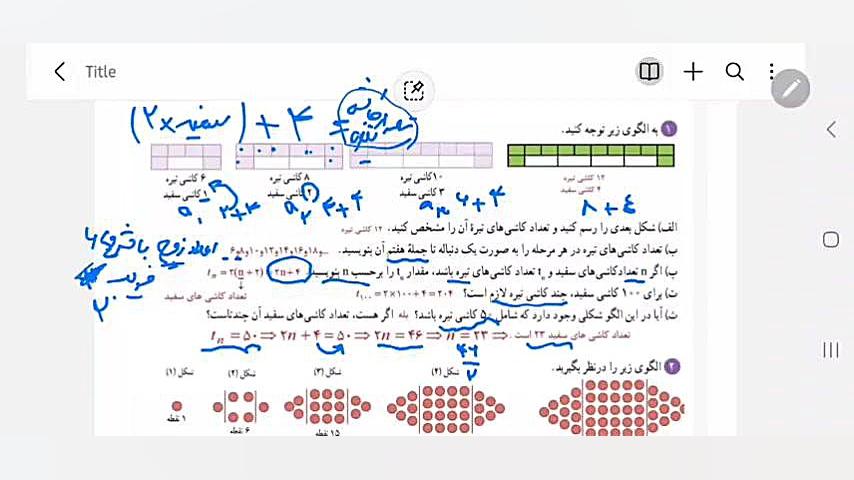 Title
(۲ × سفید) + ۴ =
۱ به الگوی زیر توجه کنید.
۶ کاشی تیره
۱ کاشی سفید
۸ کاشی تیره
۲ کاشی سفید
۱۰ کاشی تیره
۳ کاشی سفید
۱۲ کاشی تیره
۴ کاشی سفید
a₁ ۲+۴
a₂ ۴+۴
۶+۴
۸+۴
الف) شکل بعدی را رسم کنید و تعداد کاشی‌های تیرهٔ آن را مشخص کنید. ۱۲ کاشی تیره
ب) تعداد کاشی‌های تیره در هر مرحله را به صورت یک دنباله تا جملهٔ هفتم آن بنویسید. ۶و۸و۱۰و۱۲و۱۴و۱۶و۱۸و...
اعداد زوج با شروع ۶
پ) اگر n تعداد کاشی‌های سفید و tₙ تعداد کاشی‌های تیره باشد، مقدار tₙ را برحسب n بنویسید. tₙ = ۲(n+۲) = ۲n+۴
تعداد کاشی های سفید
ت) برای ۱۰۰ کاشی سفید، چند کاشی تیره لازم است؟ t₁₀₀ = ۲×۱۰۰+۴ = ۲۰۴
ث) آیا در این الگو شکلی وجود دارد که شامل ۵۰ کاشی تیره باشد؟ بله اگر هست، تعداد کاشی‌های سفید آن چندتاست؟
tₙ = ۵۰ ⇒ ۲n + ۴ = ۵۰ ⇒ ۲n = ۴۶ ⇒ n = ۲۳ ⇒ تعداد کاشی های سفید ۲۳ است.
۴۶
۲
۲ الگوی زیر را درنظر بگیرید.
شکل (۱)
شکل (۲)
شکل (۳)
شکل (۴)
۱ نقطه
۶ نقطه
۱۵ نقطه